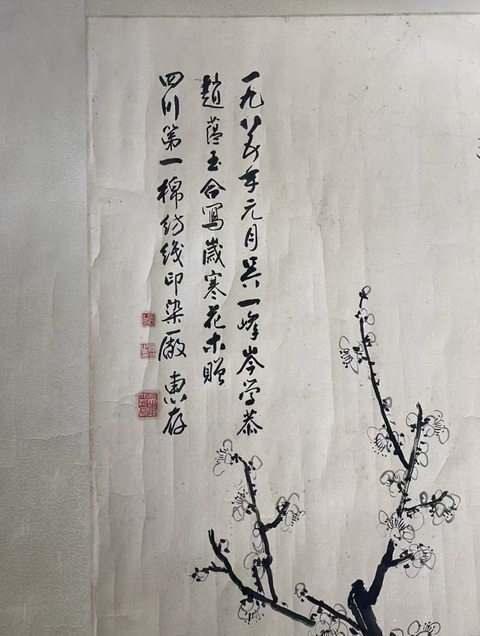 一九八五年元月吴一峰岑学恭
赵蕴玉合写岁寒花木赠
四川第一棉纺织印染厂惠存